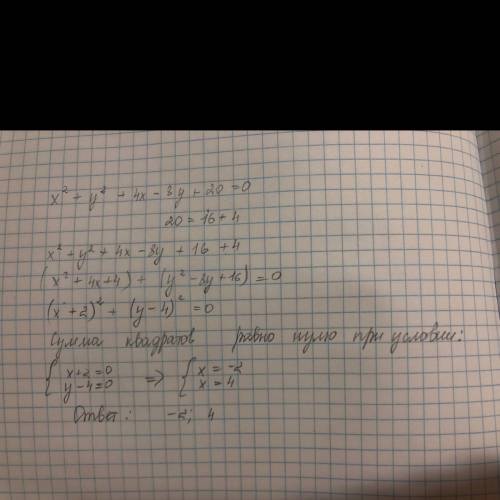 x² + y² + 4x - 8y + 20 = 0
20 = 16 + 4
x² + y² + 4x - 8y + 16 + 4
(x² + 4x + 4) + (y² - 8y + 16) = 0
(x + 2)² + (y - 4)² = 0
Сумма квадратов равно нулю при условии:
{ x + 2 = 0 => { x = -2
y - 4 = 0 x = 4
Ответ: -2; 4